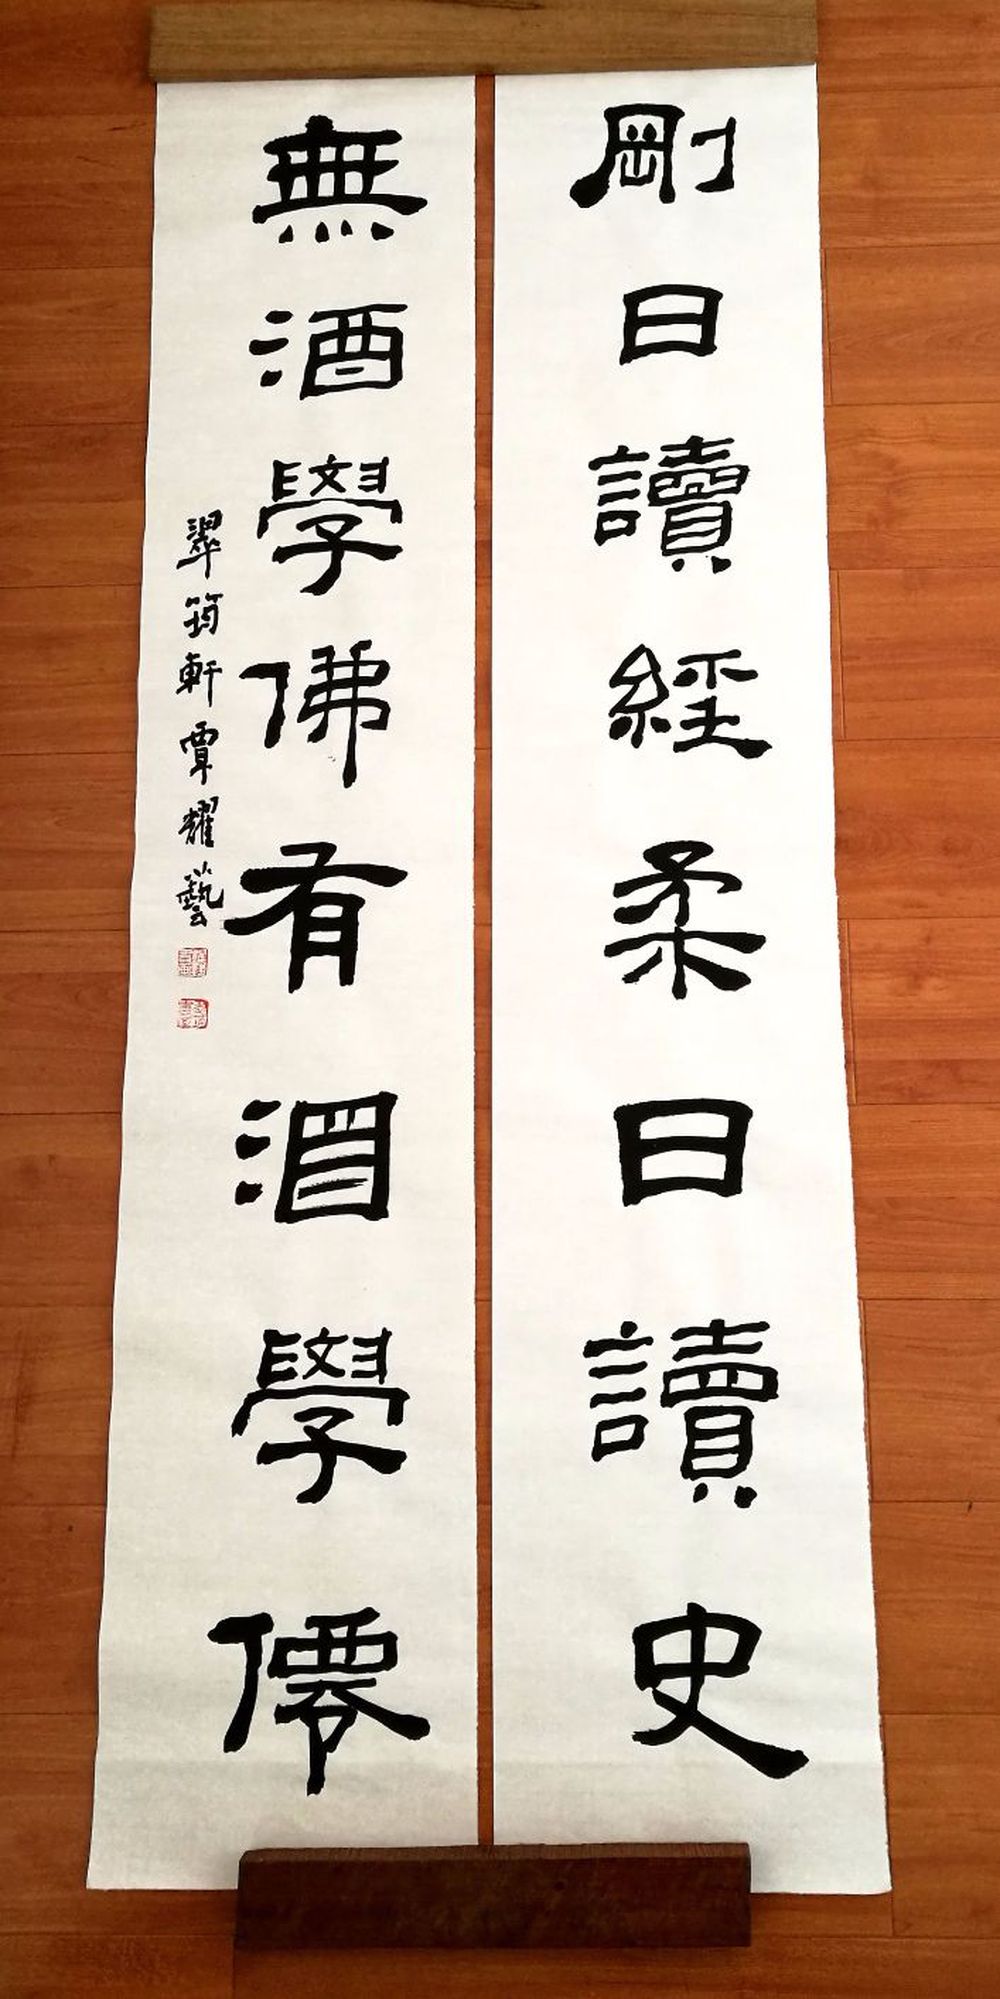 剛日讀經柔日讀史
無酒學佛有酒學僊
翠筠軒覃耀藝